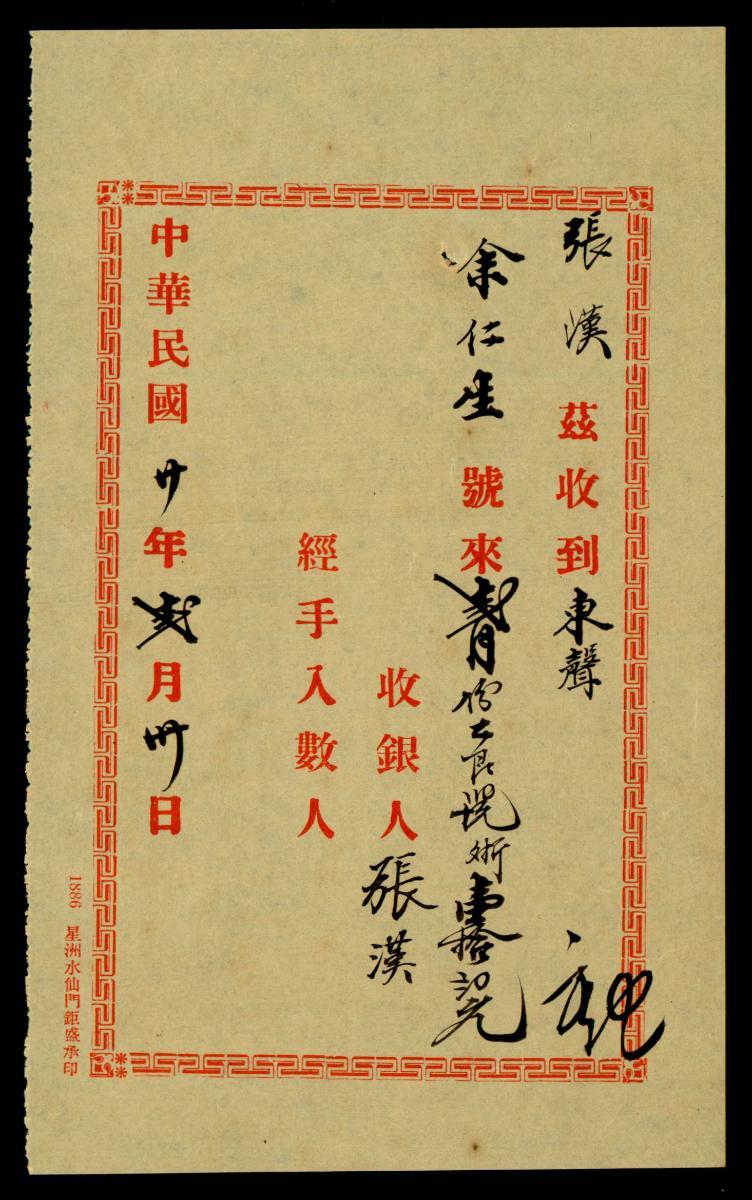 張漢茲收到東聲
余仁生號來貳月份
收銀人張漢
經手入數人
中華民國廿年貳月卅日
1886 星洲水仙門鉅盛承印